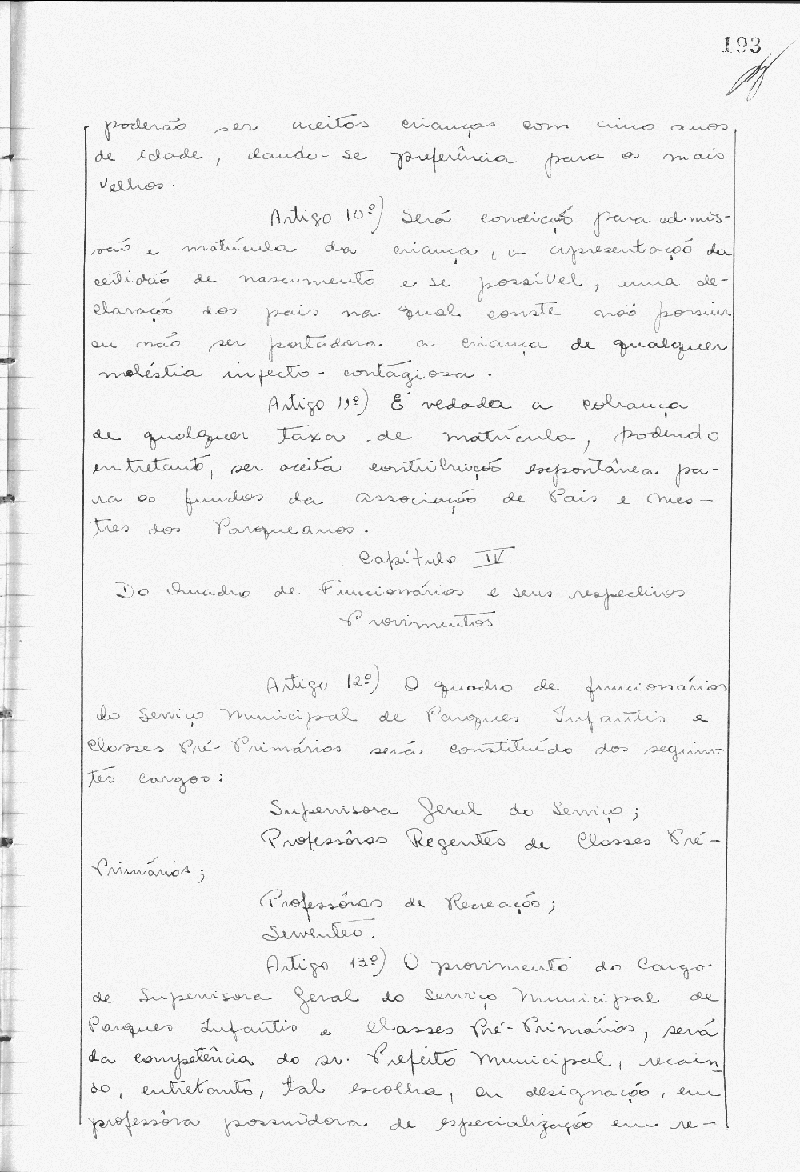 193
poderão ser aceitos crianças com cinco anos
de idade, dando-se preferência para os mais
velhos.
Artigo 10º) Será condição para admis-
são e matrícula da criança, a apresentação da
certidão de nascimento e se possível, uma de-
claração dos pais na qual conste não possuir
ou não ser portadora a criança de qualquer
moléstia infecto-contagiosa.
Artigo 11º) É vedada a cobrança
de qualquer taxa de matrícula, podendo
entretanto, ser aceita contribuição espontânea pa-
ra os fundos da Associação de Pais e Mes-
tres dos Parqueanos.
Capítulo IV
Do Quadro de Funcionários e seus respectivos
Provimentos
Artigo 12º) O quadro de funcionários
do Serviço Municipal de Parques Infantis e
Classes Pré-Primários será constituído dos seguin-
tes cargos:
Supervisora Geral do Serviço;
Professôras Regentes de Classes Pré-
Primários;
Professôras de Recreação;
Serventes.
Artigo 13º) O provimento do Cargo
de Supervisora Geral do Serviço Municipal de
Parques Infantis e Classes Pré-Primários, será
da competência do sr. Prefeito Municipal, recain-
do, entretanto, tal escolha, ou designação, em
professôra possuidora de especialização em re-